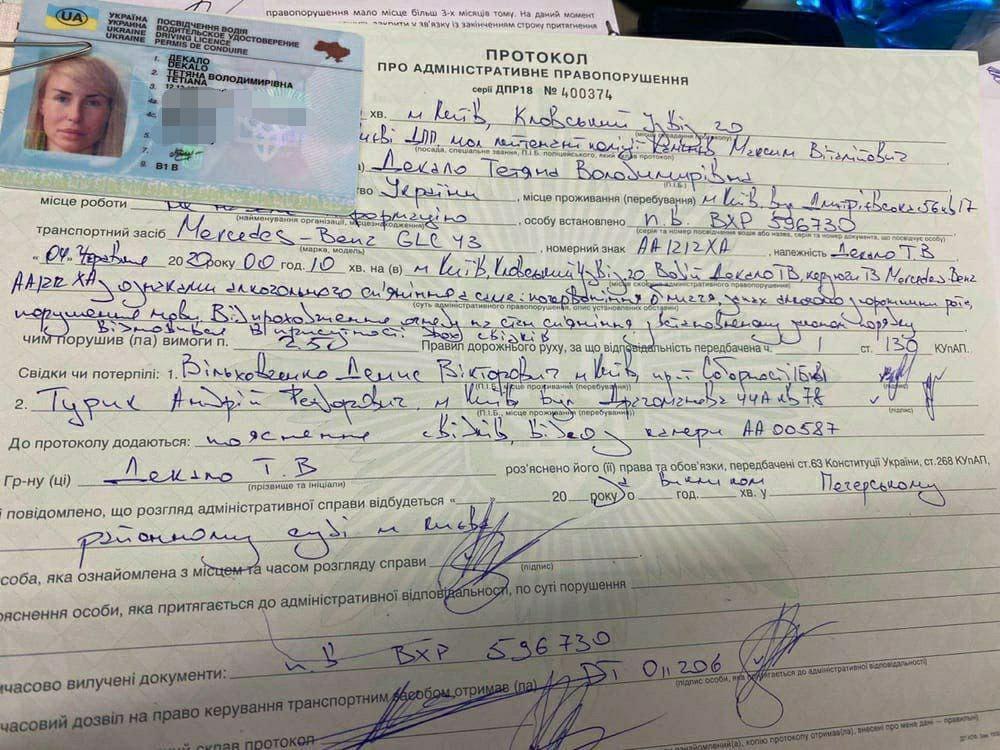 правопорушення мало місце більш 3-х місяців тому. На даний момент
у зв'язку із закінченням строку притягнення
UA
УКРАЇНА
УКРАИНА
UKRAINE
UKRAINE
ПОСВІДЧЕННЯ ВОДІЯ
ВОДИТЕЛЬСКОЕ УДОСТОВЕРЕНИЕ
DRIVING LICENCE
PERMIS DE CONDUIRE
1. ДЕКАЛО
DEKALO
2. ТЕТЯНА ВОЛОДИМИРІВНА
TETIANA
3.
4a.
4c.
5.
7.
9. B1 B
ПРОТОКОЛ
ПРО АДМІНІСТРАТИВНЕ ПРАВОПОРУШЕННЯ
серії ДПР18 № 400374
хв. м Київ, Кловський узвіз 20
Максим Віталійович
(посада, спеціальне звання, П.І.Б. поліцейського, який склав протокол)
Декало Тетяна Володимирівна
(П.І.Б.)
України, місце проживання (перебування) м Київ
місце роботи інформацію, особу встановлено п.в. ВХР 596730
(найменування організації, місцезнаходження)
(серія та номер посвідчення водія або назва, серія та номер документа, що посвідчує особу)
транспортний засіб Mercedes-Benz GLC 43, номерний знак АА1212ХА, належність Декало Т.В
(марка, модель)
"04" червня 2020 року 00 год. 10 хв. на (в) м Київ, Кловський узвіз 20 Водій Декало ТВ, керуючи ТЗ Mercedes Benz
АА1212 ХА з ознаками алкогольного сп'яніння а саме: почервоніння обличчя, запах алкоголю з порожнини рота,
(суть адміністративного правопорушення, опис установлених обставин)
порушення мови. Від проходження огляду на стан сп'яніння у встановленому законом порядку
відмовилася в присутності двох свідків
чим порушив (ла) вимоги п. 2.5 Правил дорожнього руху, за що відповідальність передбачена ч. 1 ст. 130 КУпАП.
Свідки чи потерпілі: 1. Денис Вікторович м Київ пр-т Соборності
(П.І.Б., місце проживання (перебування))
(підпис)
2. Турик Андрій Федорович, м Київ вул Драгоманова 44А кв 78
(П.І.Б., місце проживання (перебування))
(підпис)
До протоколу додаються: пояснення свідків, відео з камери АА 00587
Гр-ну (ці) Декало Т.В роз'яснено його (її) права та обов'язки, передбачені ст.63 Конституції України, ст.268 КУпАП,
(прізвище та ініціали)
і повідомлено, що розгляд адміністративної справи відбудеться " " 20 року о год. хв. у Печерському
за викликом
районному суді м Києва
соба, яка ознайомлена з місцем та часом розгляду справи
(підпис)
ояснення особи, яка притягається до адміністративної відповідальності, по суті порушення
мчасово вилучені документи: п.в ВХР 596730
часовий дозвіл на право керування транспортним засобом отримав (ла) DT 011206
(підпис особи, яка притягається до адміністративної відповідальності)
склав протокол
ознайомлений(а), копію протоколу отримав(ла), внесені про мене дані — правильні